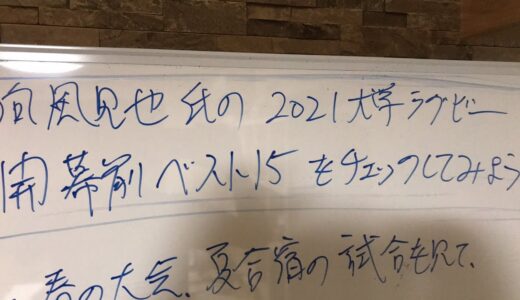 向風見也氏の2021大学ラグビー
開幕前ベスト15をチェックしてみよう
春の大会、夏合宿の試合も見て、